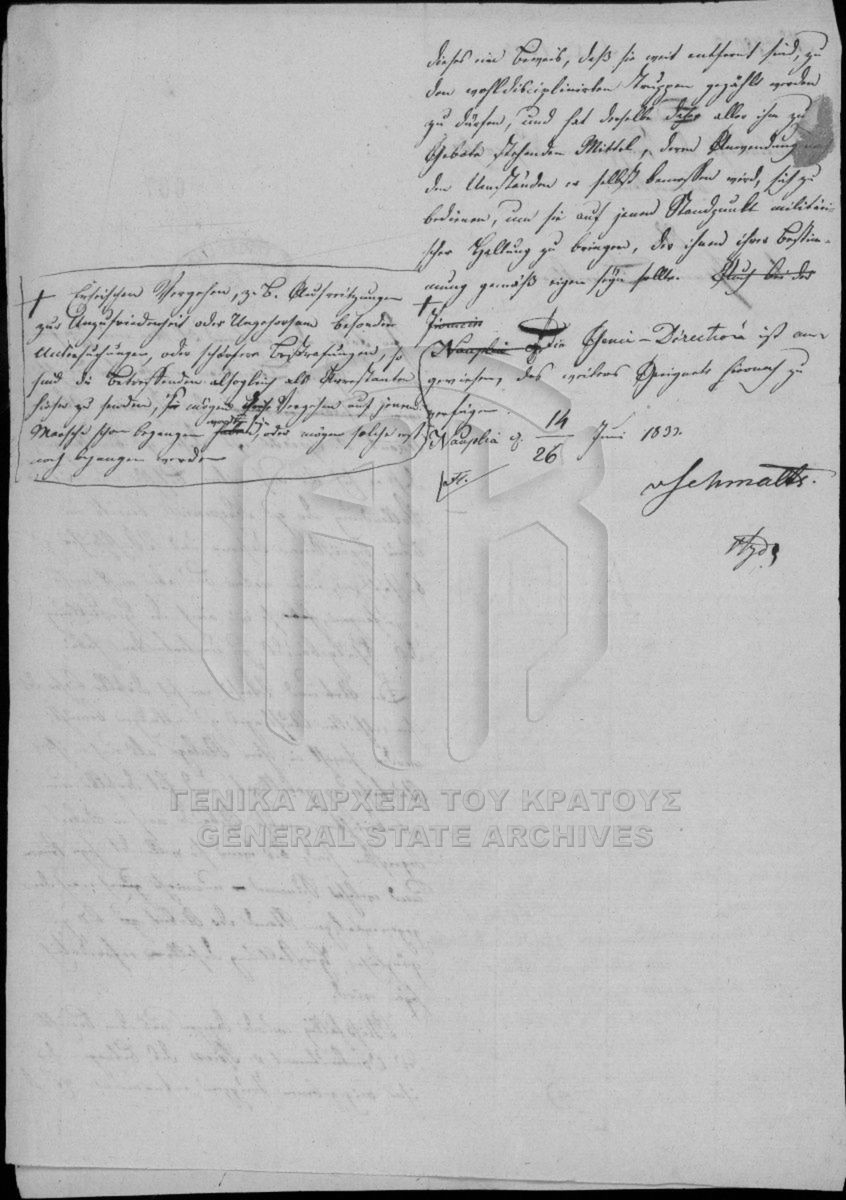 dieses ein Beweis, daß sie weit entfernt sind, zu
den wohldisciplinirten Truppen gezählt werden
zu dürfen, und hat derselbe aller ihm zu
Gebote stehenden Mittel, deren Anwendung nach
den Umständen er selbst bemessen wird, sich zu
bedienen, um sie auf jenen Standpunkt militäri-
scher Haltung zu bringen, der ihnen ihrer Bestim-
mung gemäß eigen seyn sollte. Auch bei der
+ Vergehen, z. B. Aufreitzungen
zur Unzufriedenheit oder Ungehorsam besondere
Untersuchungen, oder schärfere Bestrafungen, so
sind die Betreffenden alsogleich als Arrestanten
hieher zu senden, sie mögen Vergehen auf jenem
Marsche schon begangen haben, oder mögen solche erst
noch begangen werden
+
Nauplia die Geni-Direction ist an-
gewiesen, das weiters Geeignete hiernach zu
verfügen.
Nauplia d. 14/26 Juni 1833.
vSchmaltz.
ΓΕΝΙΚΑ ΑΡΧΕΙΑ ΤΟΥ ΚΡΑΤΟΥΣ
GENERAL STATE ARCHIVES